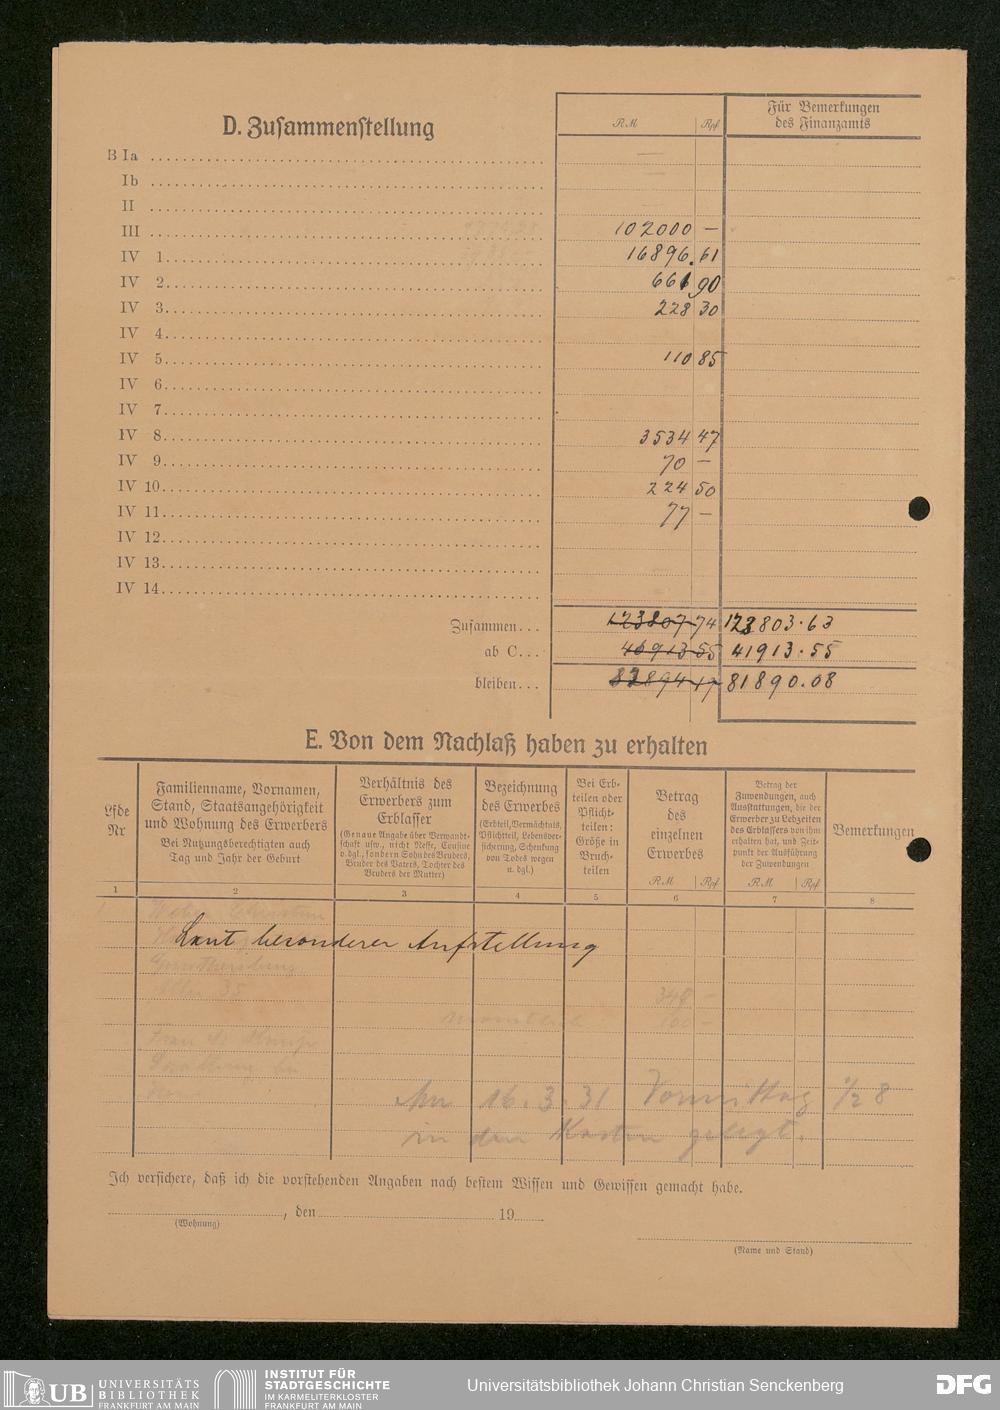 D. Zusammenstellung
RM Rpf
Für Bemerkungen
des Finanzamts
B Ia
Ib
II
III 102000 —
IV 1 16896.61
IV 2 661 90
IV 3 228 30
IV 4
IV 5 110 85
IV 6
IV 7
IV 8 3534 47
IV 9 70 —
IV 10 224 50
IV 11 77 —
IV 12
IV 13
IV 14
Zusammen... 123807 74 123803.63
ab C... 41913.55
bleiben... 81890.08
E. Von dem Nachlaß haben zu erhalten
Lfde
Nr
Familienname, Vornamen,
Stand, Staatsangehörigkeit
und Wohnung des Erwerbers
Bei Nutzungsberechtigten auch
Tag und Jahr der Geburt
Verhältnis des
Erwerbers zum
Erblasser
(Genaue Angabe über Verwandt-
schaft usw., nicht Neffe, Cousine
o. dgl., sondern Sohn des Bruders,
Bruder des Vaters, Tochter des
Bruders der Mutter)
Bezeichnung
des Erwerbes
(Erbteil, Vermächtnis,
Pflichtteil, Lebensver-
sicherung, Schenkung
von Todes wegen
u. dgl.)
Bei Erb-
teilen oder
Pflicht-
teilen:
Größe in
Bruch-
teilen
Betrag
des
einzelnen
Erwerbes
RM Rpf
Betrag der
Zuwendungen, auch
Ausstattungen, die der
Erwerber zu Lebzeiten
des Erblassers von ihm
erhalten hat, und Zeit-
punkt der Ausführung
der Zuwendungen
RM Rpf
Bemerkungen
1 2 3 4 5 6 7 8
Laut besonderer Aufstellung
Am 16.3.31 Vormittag 1/2 8
in den Kasten gelegt.
Ich versichere, daß ich die vorstehenden Angaben nach bestem Wissen und Gewissen gemacht habe.
, den 19
(Wohnung)
(Name und Stand)
UB UNIVERSITÄTS
BIBLIOTHEK
FRANKFURT AM MAIN
INSTITUT FÜR
STADTGESCHICHTE
IM KARMELITERKLOSTER
FRANKFURT AM MAIN
Universitätsbibliothek Johann Christian Senckenberg
DFG